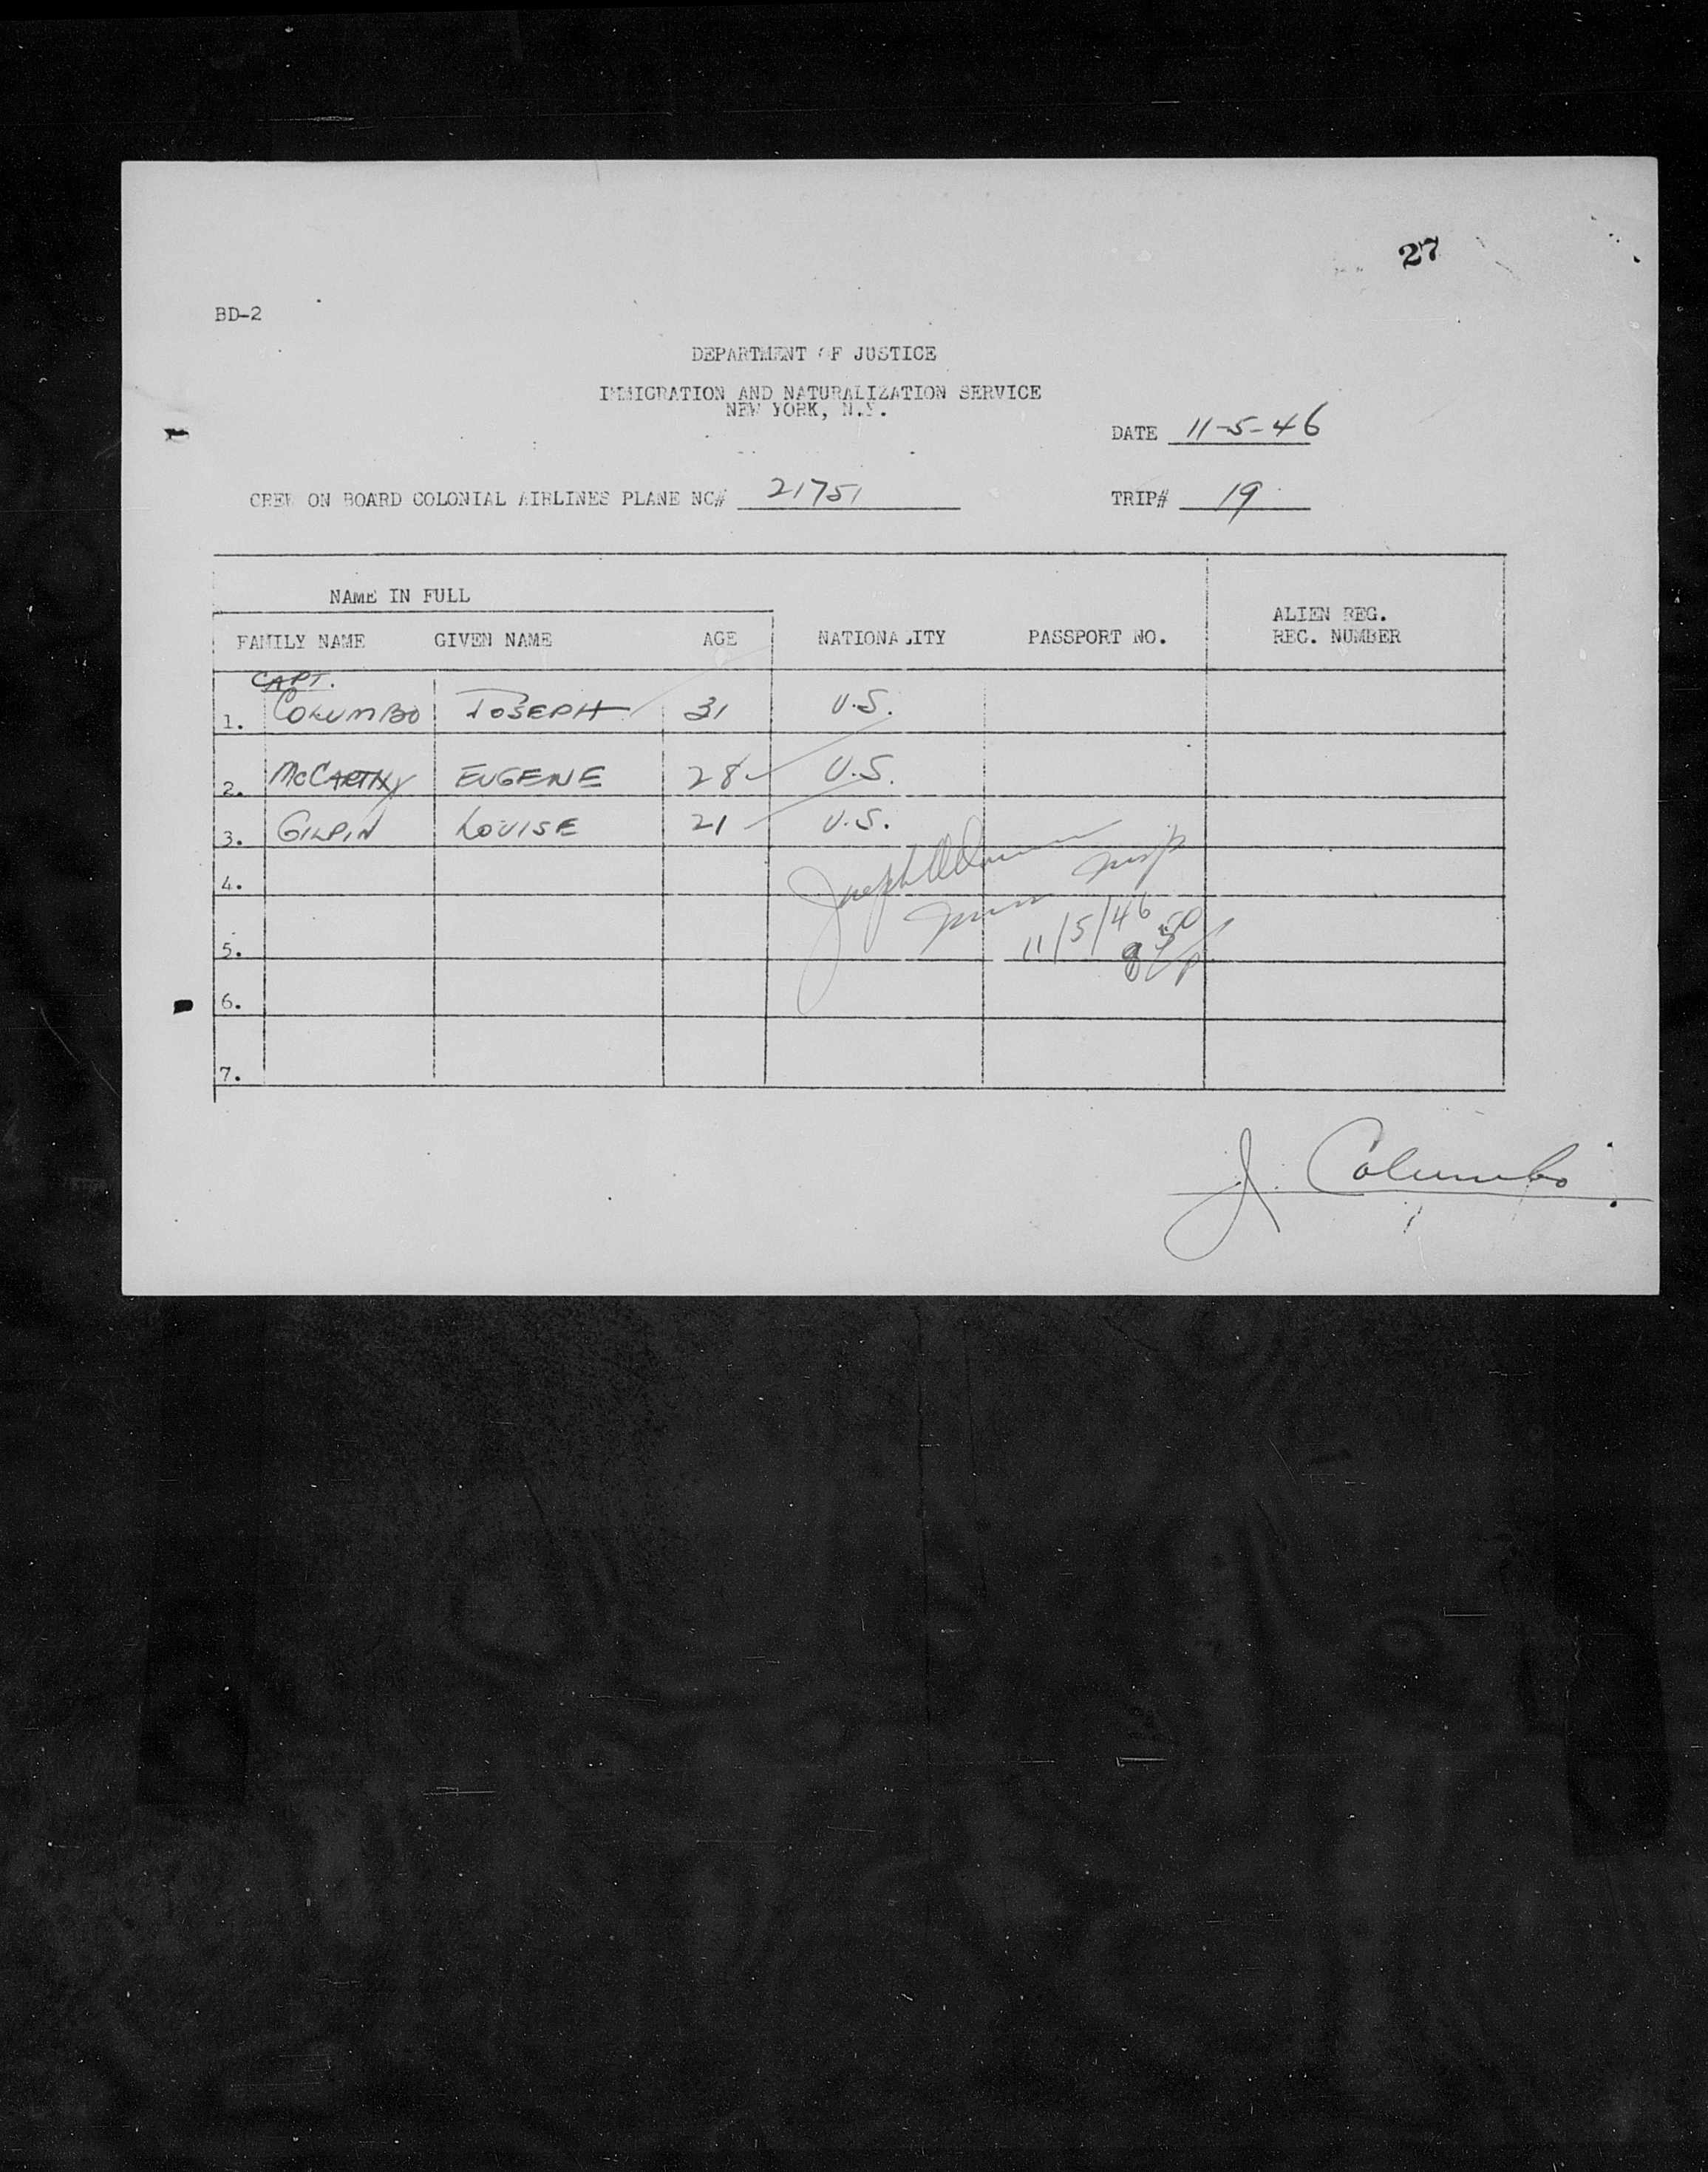 27
BD-2
DEPARTMENT OF JUSTICE
IMMIGRATION AND NATURALIZATION SERVICE
NEW YORK, N.Y.
DATE 11-5-46
CREW ON BOARD COLONIAL AIRLINES PLANE NC# 21751 TRIP# 19
NAME IN FULL
ALIEN REG.
FAMILY NAME GIVEN NAME AGE NATIONALITY PASSPORT NO. REG. NUMBER
CAPT.
1. COLUMBO JOSEPH 31 U.S.
2. McCARTHY EUGENE 28 U.S.
3. GILPIN LOUISE 21 U.S.
Joseph
4.
11/5/46
5.
8 50 P
6.
7.
J. Columbo